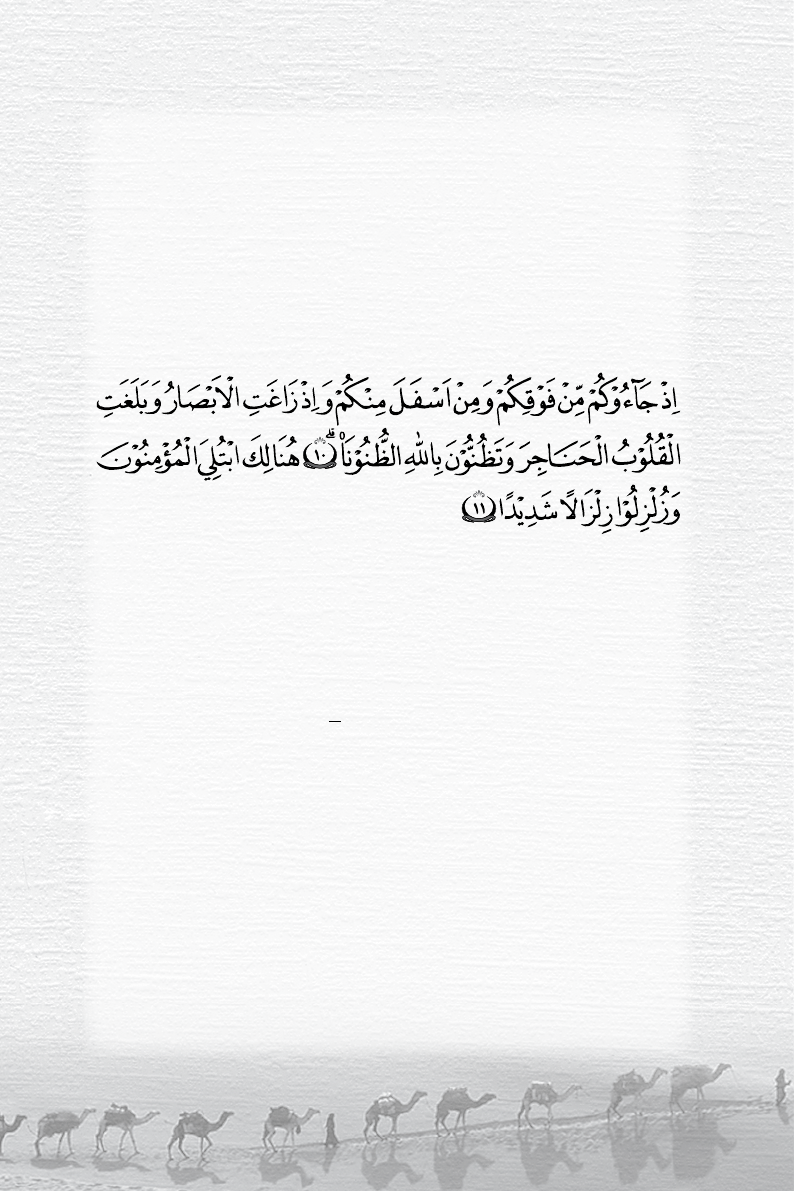 اِذْ جَآءُوْكُمْ مِّنْ فَوْقِكُمْ وَمِنْ اَسْفَلَ مِنْكُمْ وَاِذْ زَاغَتِ الْاَبْصَارُ وَبَلَغَتِ
الْقُلُوْبُ الْحَنَاجِرَ وَتَظُنُّوْنَ بِاللّٰهِ الظُّنُوْنَا۠ ۗ ۝١٠ هُنَالِكَ ابْتُلِيَ الْمُؤْمِنُوْنَ
وَزُلْزِلُوْا زِلْزَالًا شَدِيْدًا ۝١١
–